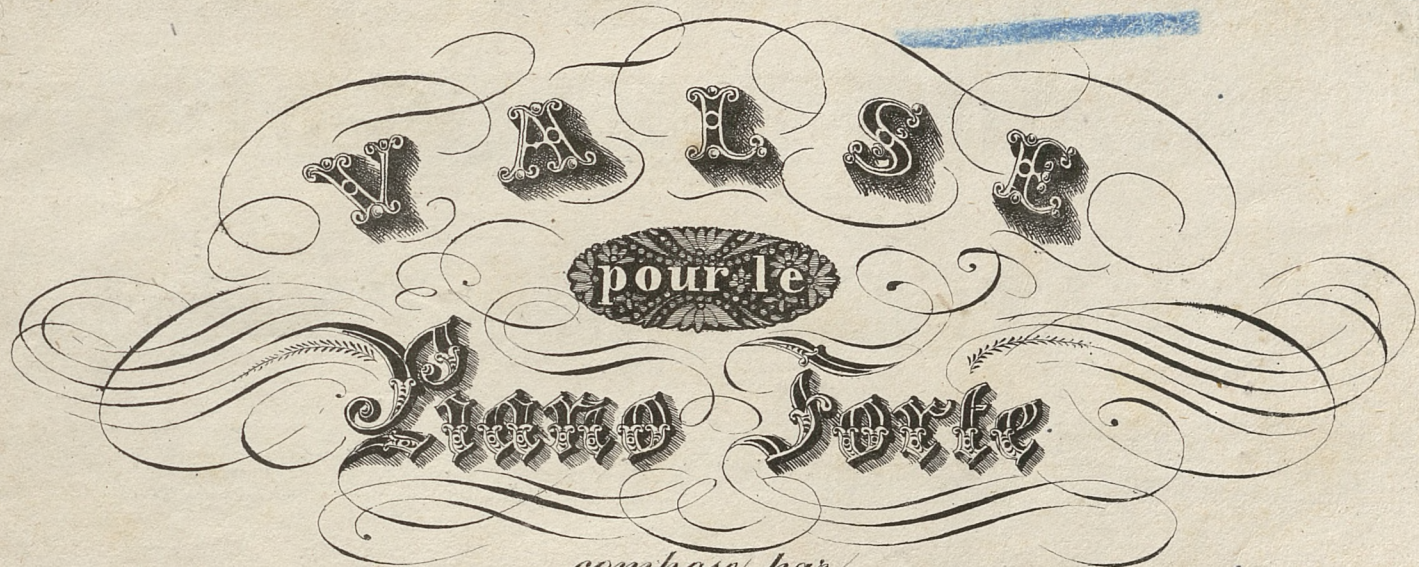 VALSE
pour le
Piano Forte
composé par